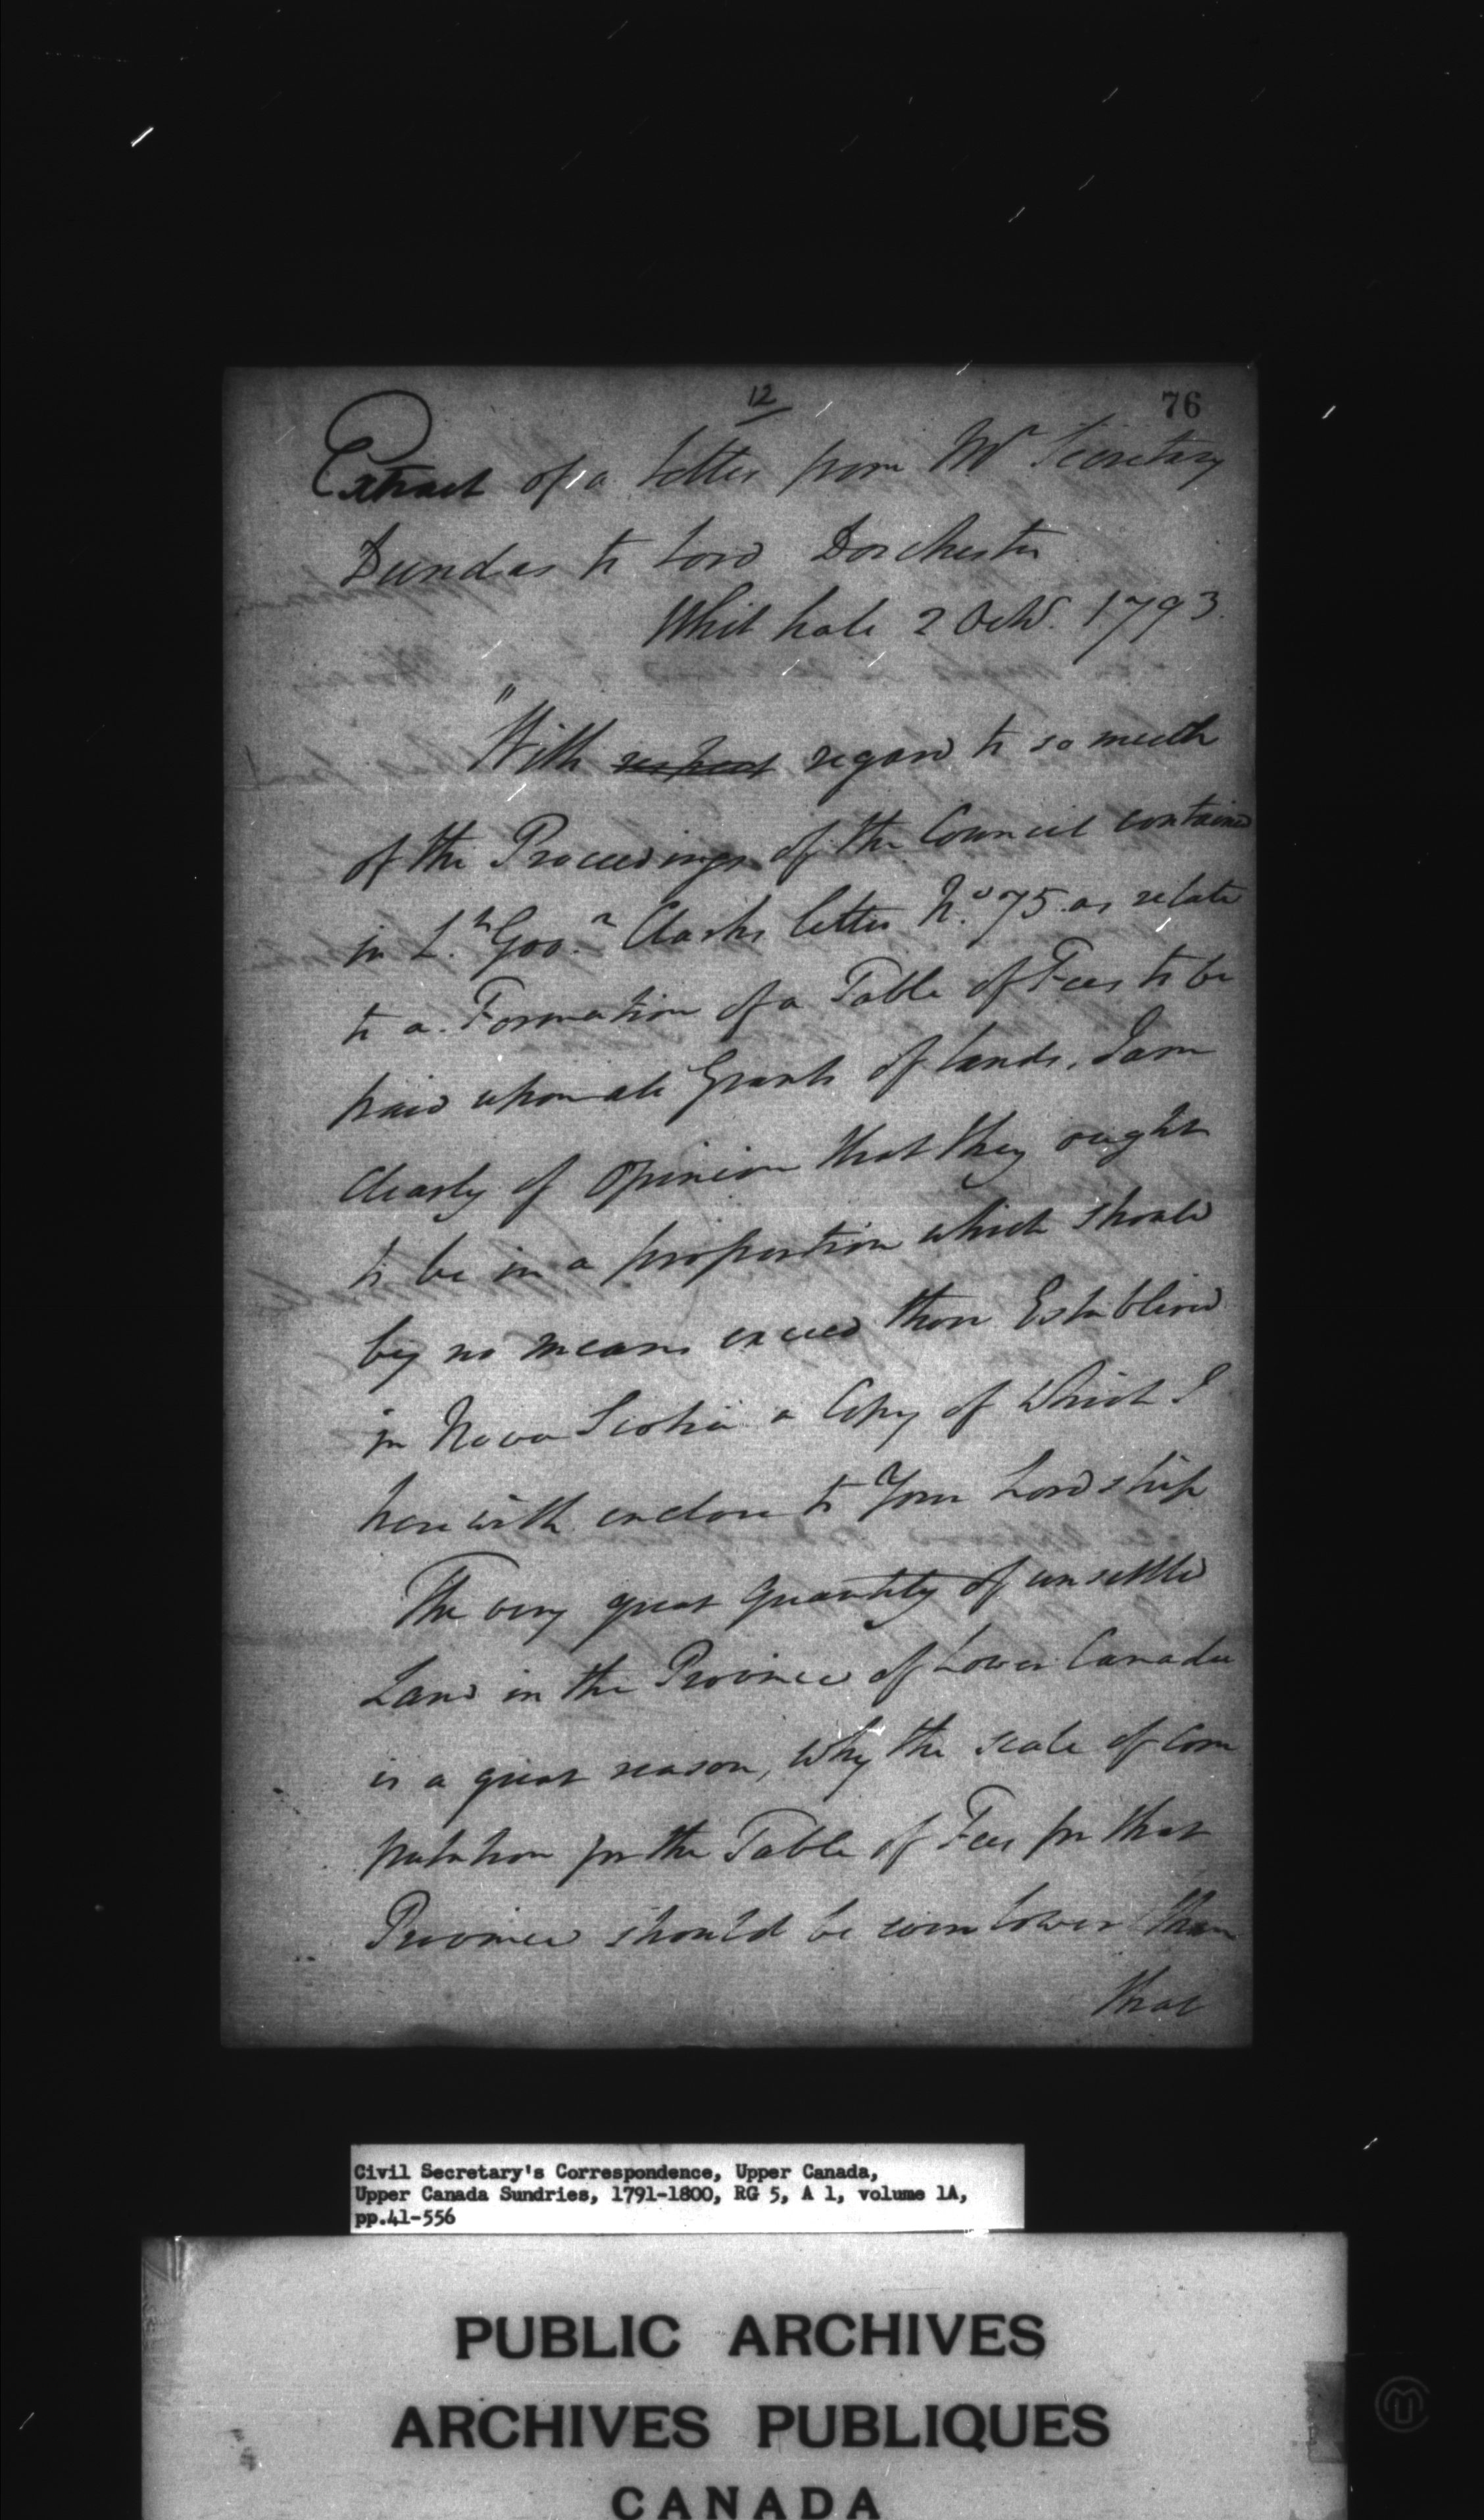 12
76
Extract of a Letter from Mr Secretary
Dundas to Lord Dorchester
Whit hall 2 Octbr. 1793.
"With respect regard to so much
of the Proceedings of the Council contained
in Lt. Govr. Clarks letter No. 75 as relate
to a Formation of a Table of Fees to be
paid upon all Grants of Lands, I am
Clearly of Opinion that they ought
to be in a proportion which should
by no means exceed those Established
in Nova Scotia a Copy of Which I
herewith enclose to Your Lordship
The very great Quantity of unsettled
Land in the Province of Lower Canada
is a great reason, Why the scale of Com
putation for the Table of Fees for that
Province should be even lower than
that
Civil Secretary's Correspondence, Upper Canada,
Upper Canada Sundries, 1791-1800, RG 5, A 1, volume 1A,
pp.41-556
PUBLIC ARCHIVES
ARCHIVES PUBLIQUES
CANADA